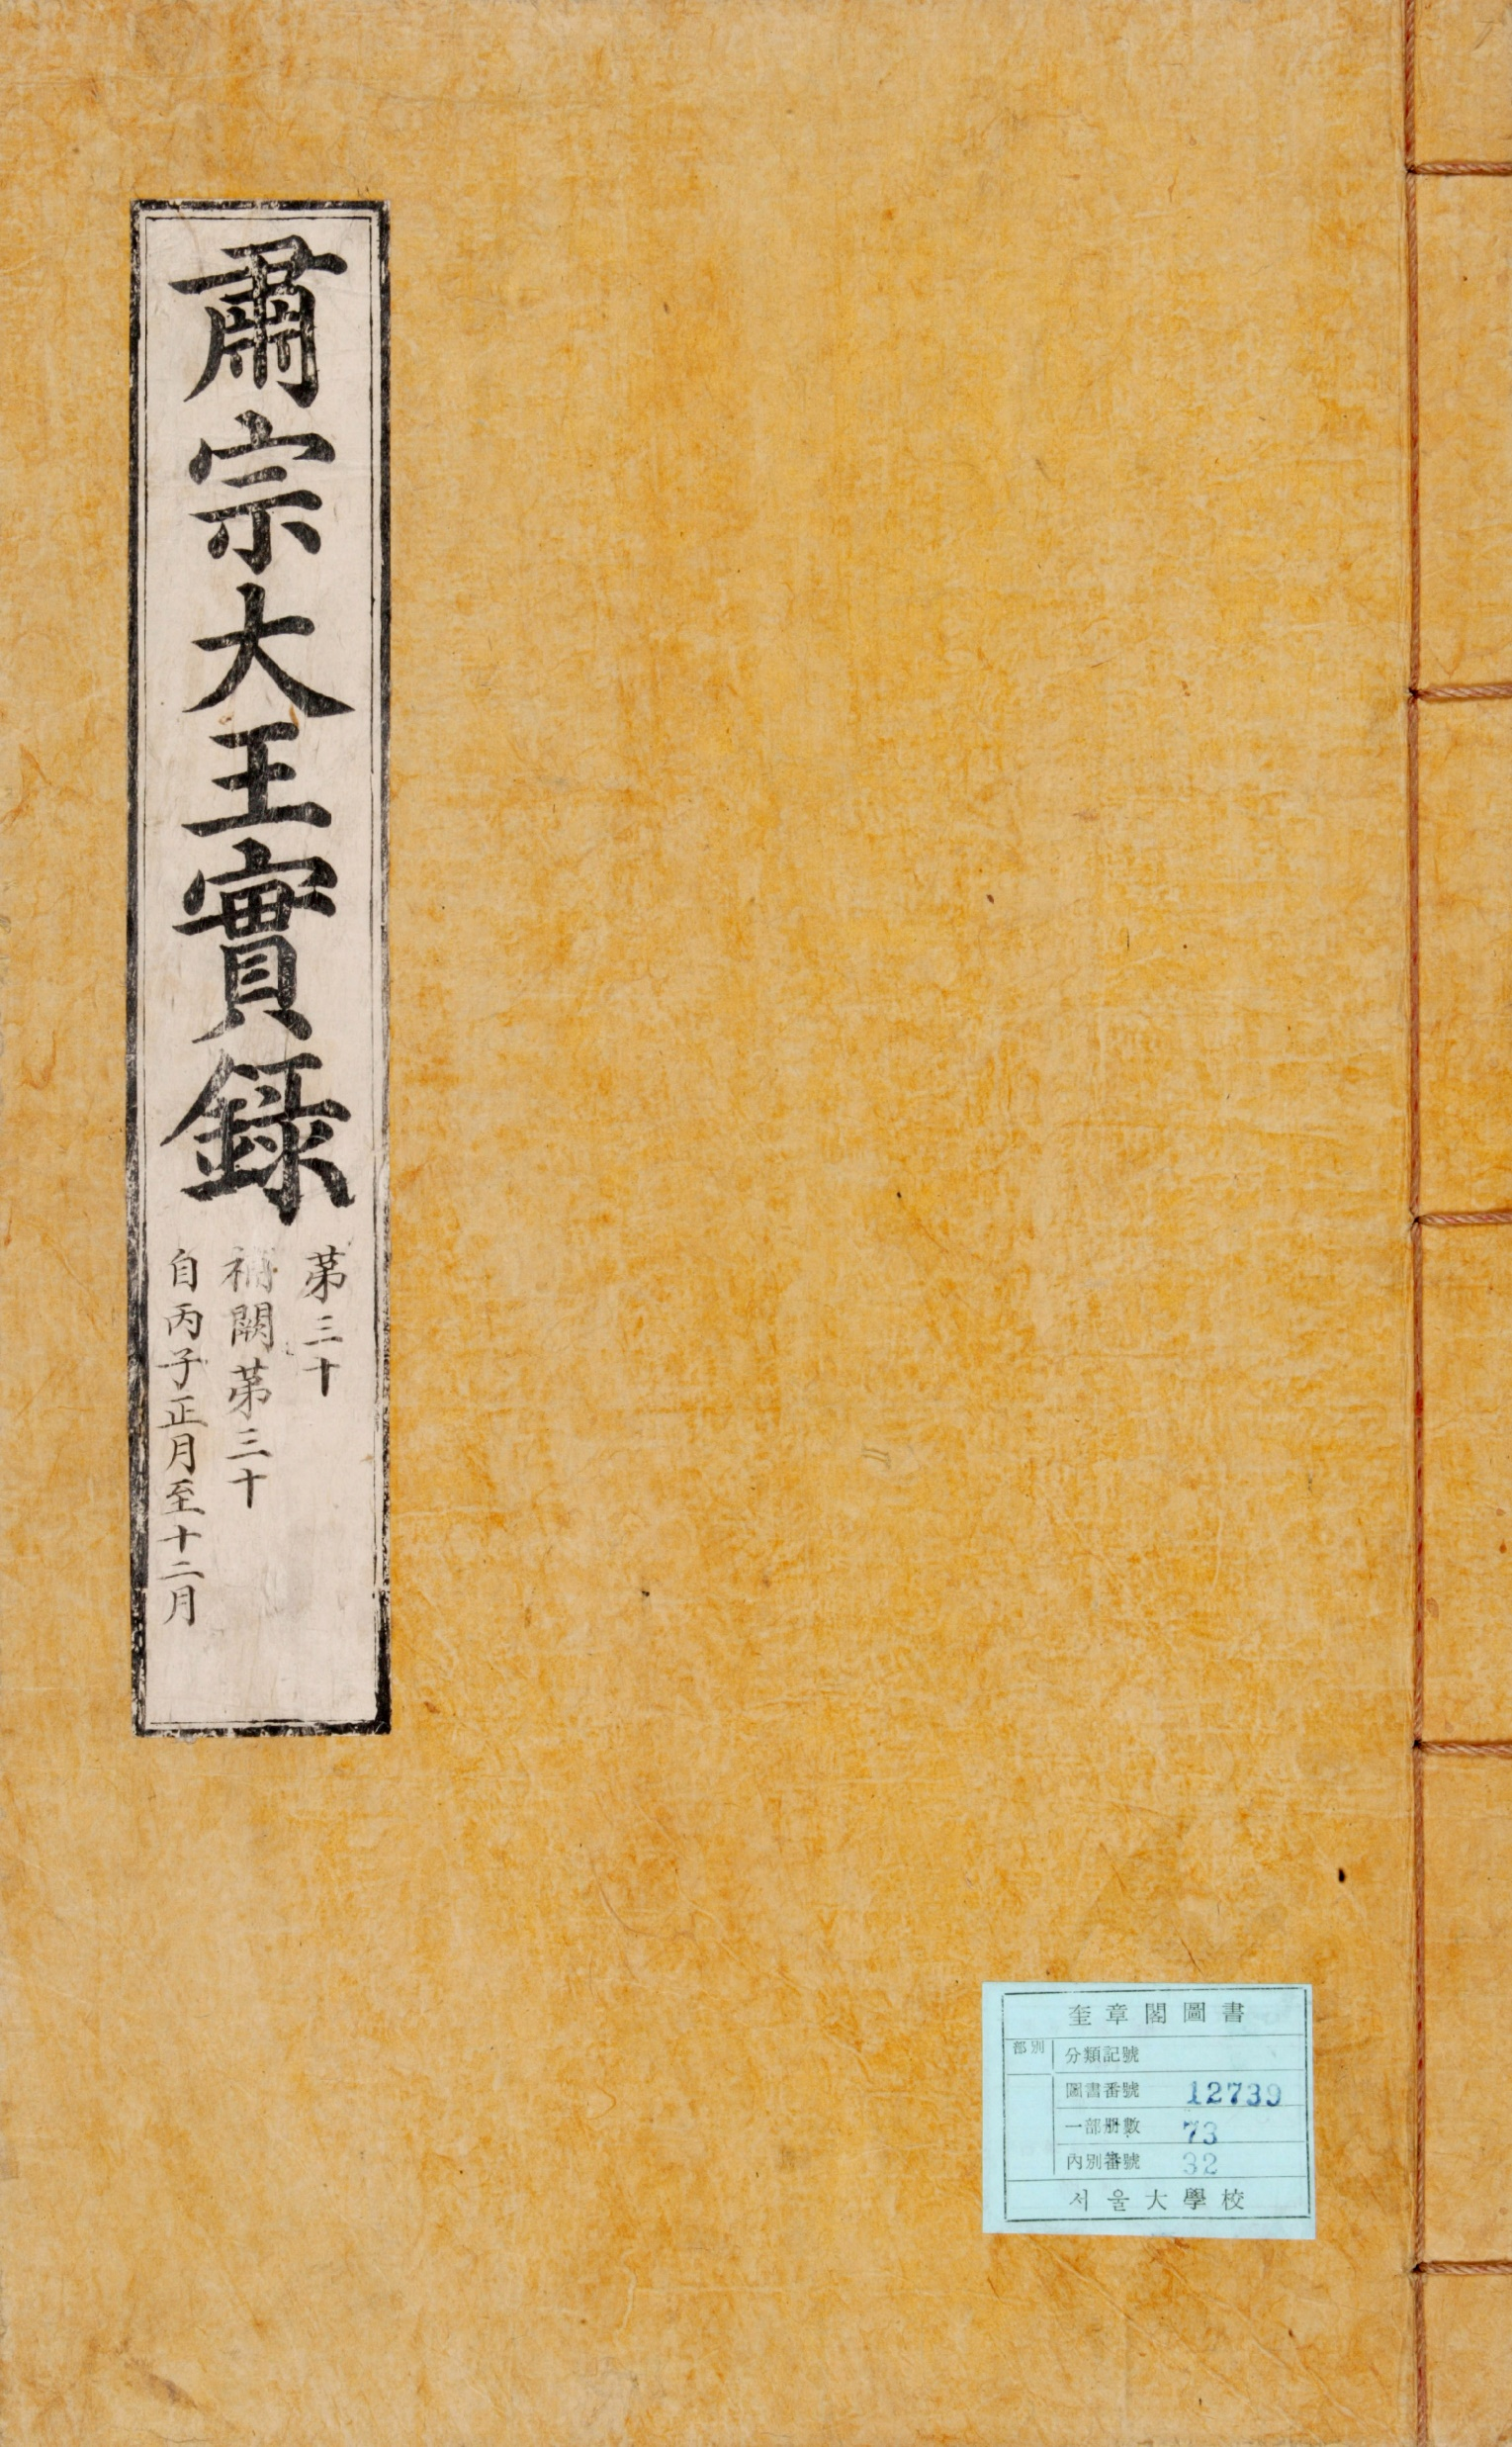 肅宗大王實錄
第三十
補闕第三十
自丙子正月至十二月
奎章閣圖書
部別
分類記號
圖書番號 12739
一部册數 73
內別番號 32
서울大學校